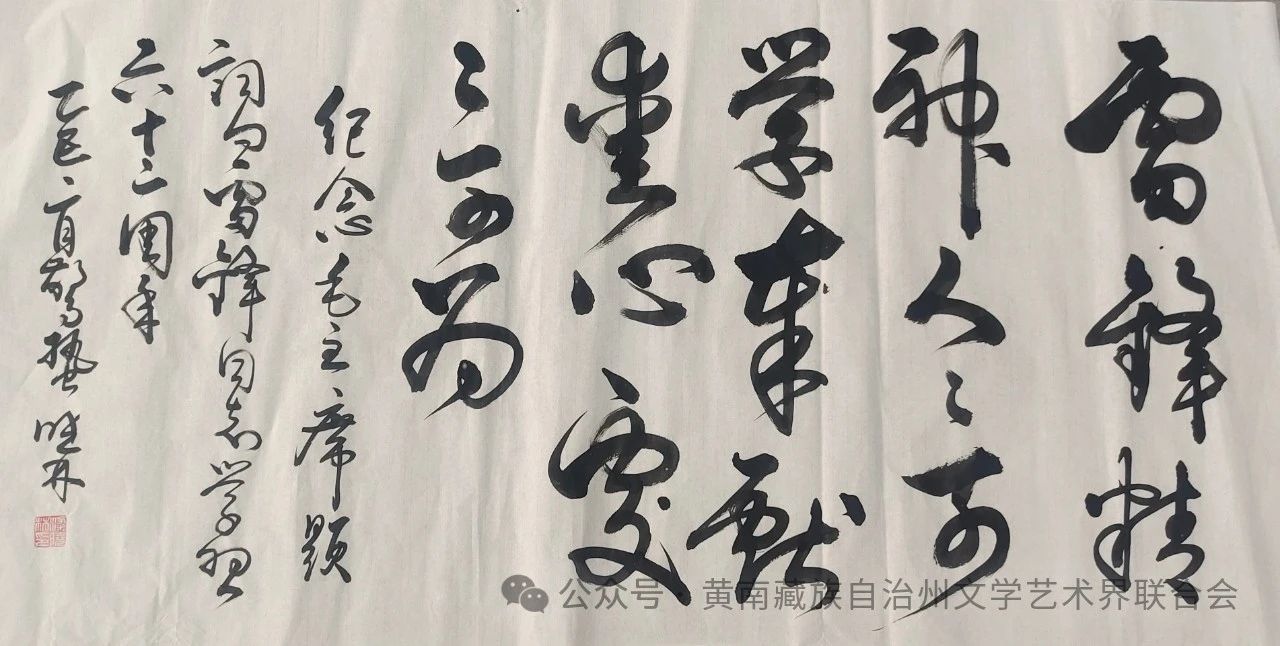 雷锋精
神人々可
学奉献
爱心处
々可为
纪念毛主席题
词向雷锋同志学习
六十二周年
乙巳二月惊蛰
公众号 · 黄南藏族自治州文学艺术界联合会